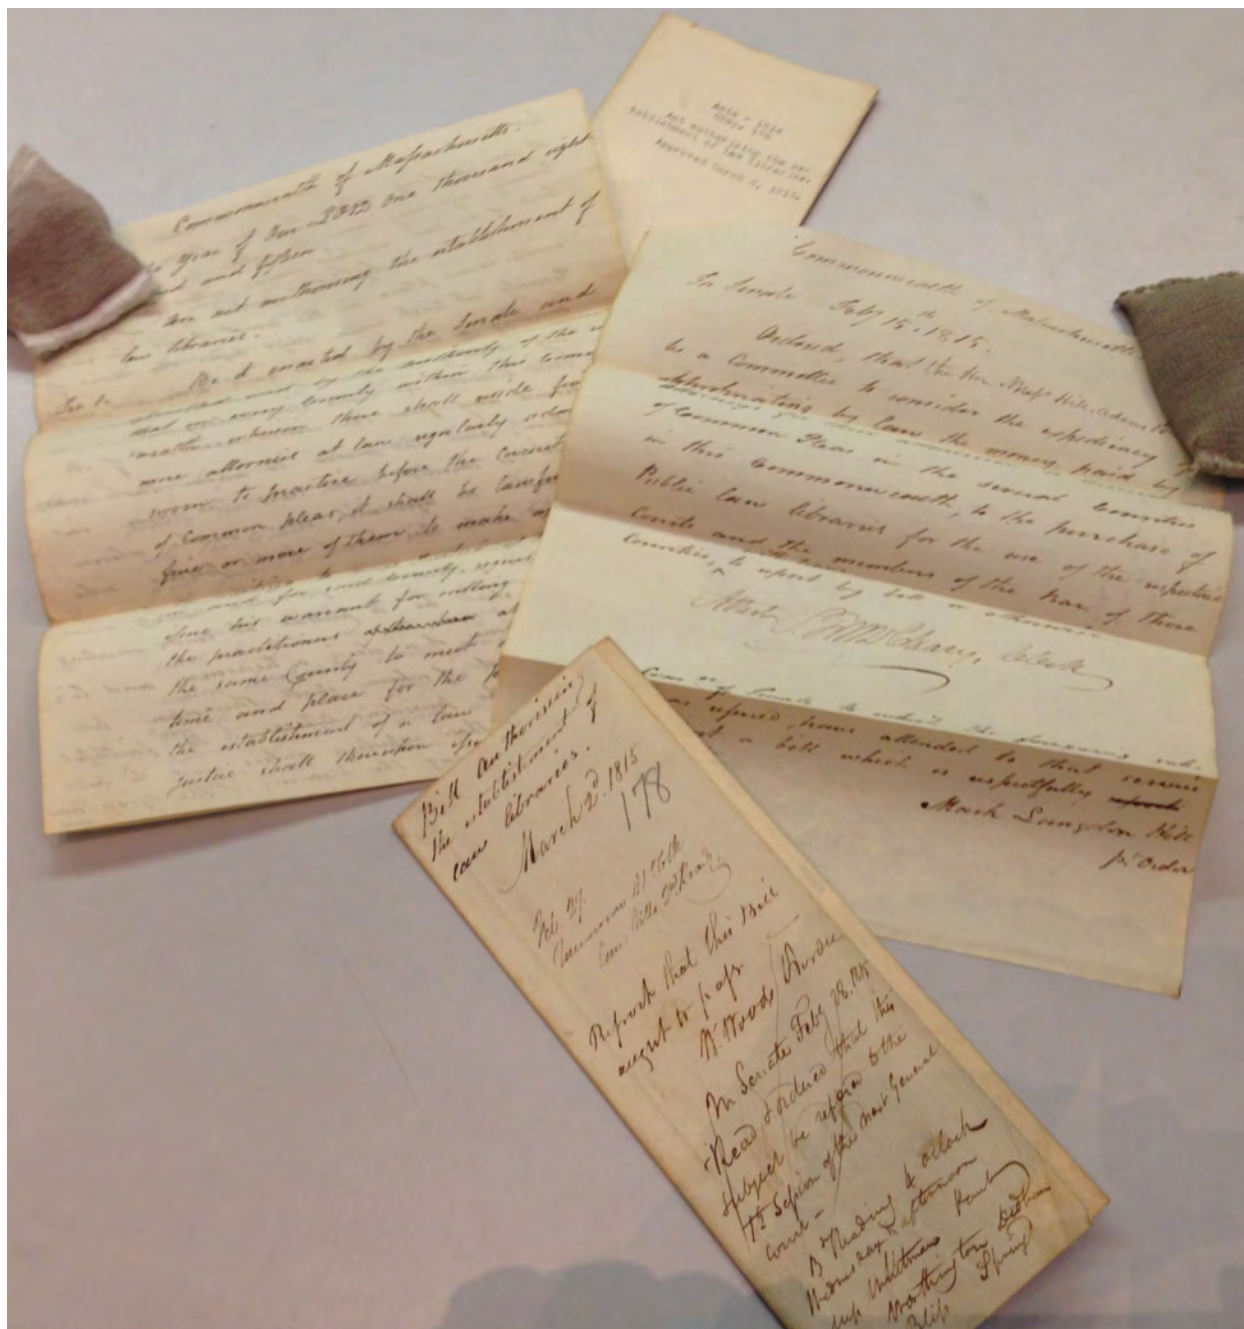 Commonwealth of Massachusetts
year of Our LORD One thousand eight
and fifteen.
An act authorising the establishment of
law libraries.
Sec 1. Be it enacted by the Senate and
and by the authority of the
that in every County within this
wherein there shall reside
more attornies at law regularly
sworn to practice before the Circuit
of Common pleas, it shall be lawful
five or more of them, to make
in and for said County,
issue his warrant for calling
the practitioners
the same County to meet
time and place for the
the establishment of a law
justice shall thereupon
Acts - 1814
Chap. 178
Act authorizing the es-
tablishment of Law Libraries.
Approved March 2, 1815.
Commonwealth of Massachusetts
In Senate Feby 15th 1815.
Ordered, that the Hon Messrs Hill, Adams
be a Committee to consider the expediency of
appropriating by law the money paid by
of Common Pleas in the several Counties
in this Commonwealth, to the purchase of
Public law libraries for the use of the respective
Courts and the members of the bar of those
Counties, to report by bill or otherwise
Attest S. F. McCleary, Clerk
of Senate to which the foregoing
was referred have attended to that service
a bill which is respectfully
Mark Langdon Hill
pr Order
Bill authorising
the establishment of
law libraries.
March 2d. 1815
178
Feb. 27.
Tomorrow
Reports that this Bill
ought to pass.
In Senate Feby 28. 1815
Read & ordered that this
subject be referred to the
1st Session of the next General
Court -
Reading 4 oclock
Wednesday afternoon
Whitman
Worthington Dedham
Bliss Spring